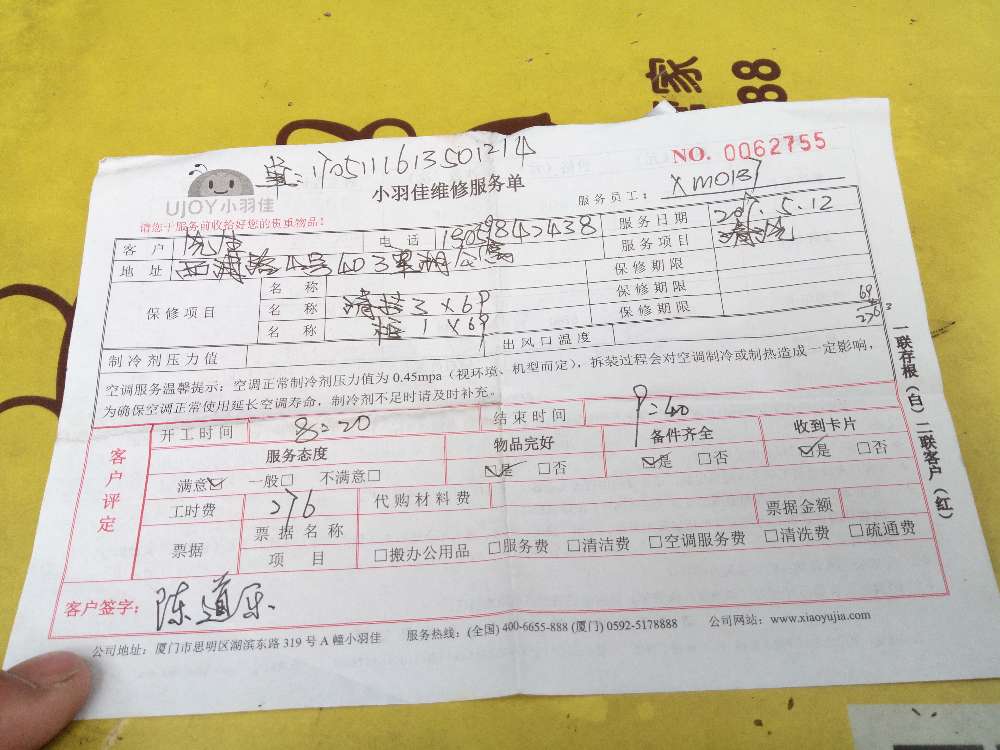 家
88
单:1705111613501214
NO. 0062755
UJOY小羽佳
小羽佳维修服务单
服务员工: XM0137
请您于服务前收拾好您的贵重物品!
客 户 电 话 服务日期 2017.5.12
地 址 服务项目 清洗
保修项目 名 称 保修期限
名 称 清挂3×69 保修期限
名 称 柜1×69 保修期限
69
276
制冷剂压力值 出风口温度
空调服务温馨提示: 空调正常制冷剂压力值为 0.45mpa (视环境、机型而定), 拆装过程会对空调制冷或制热造成一定影响,
为确保空调正常使用延长空调寿命, 制冷剂不足时请及时补充。
客户评定
开工时间 8:20 结束时间 9:40
服务态度 物品完好 备件齐全 收到卡片
满意☑ 一般□ 不满意□ ☑是 □否 ☑是 □否 ☑是 □否
工时费 276 代购材料费 票据金额
票据 票据名称
项 目 □搬办公用品 □服务费 □清洁费 □空调服务费 □清洗费 □疏通费
客户签字: 陈道乐
公司地址: 厦门市思明区湖滨东路 319 号 A 幢小羽佳 服务热线: (全国) 400-6655-888 (厦门) 0592-5178888 公司网站: www.xiaoyujia.com
一联存根(白) 二联客户(红)